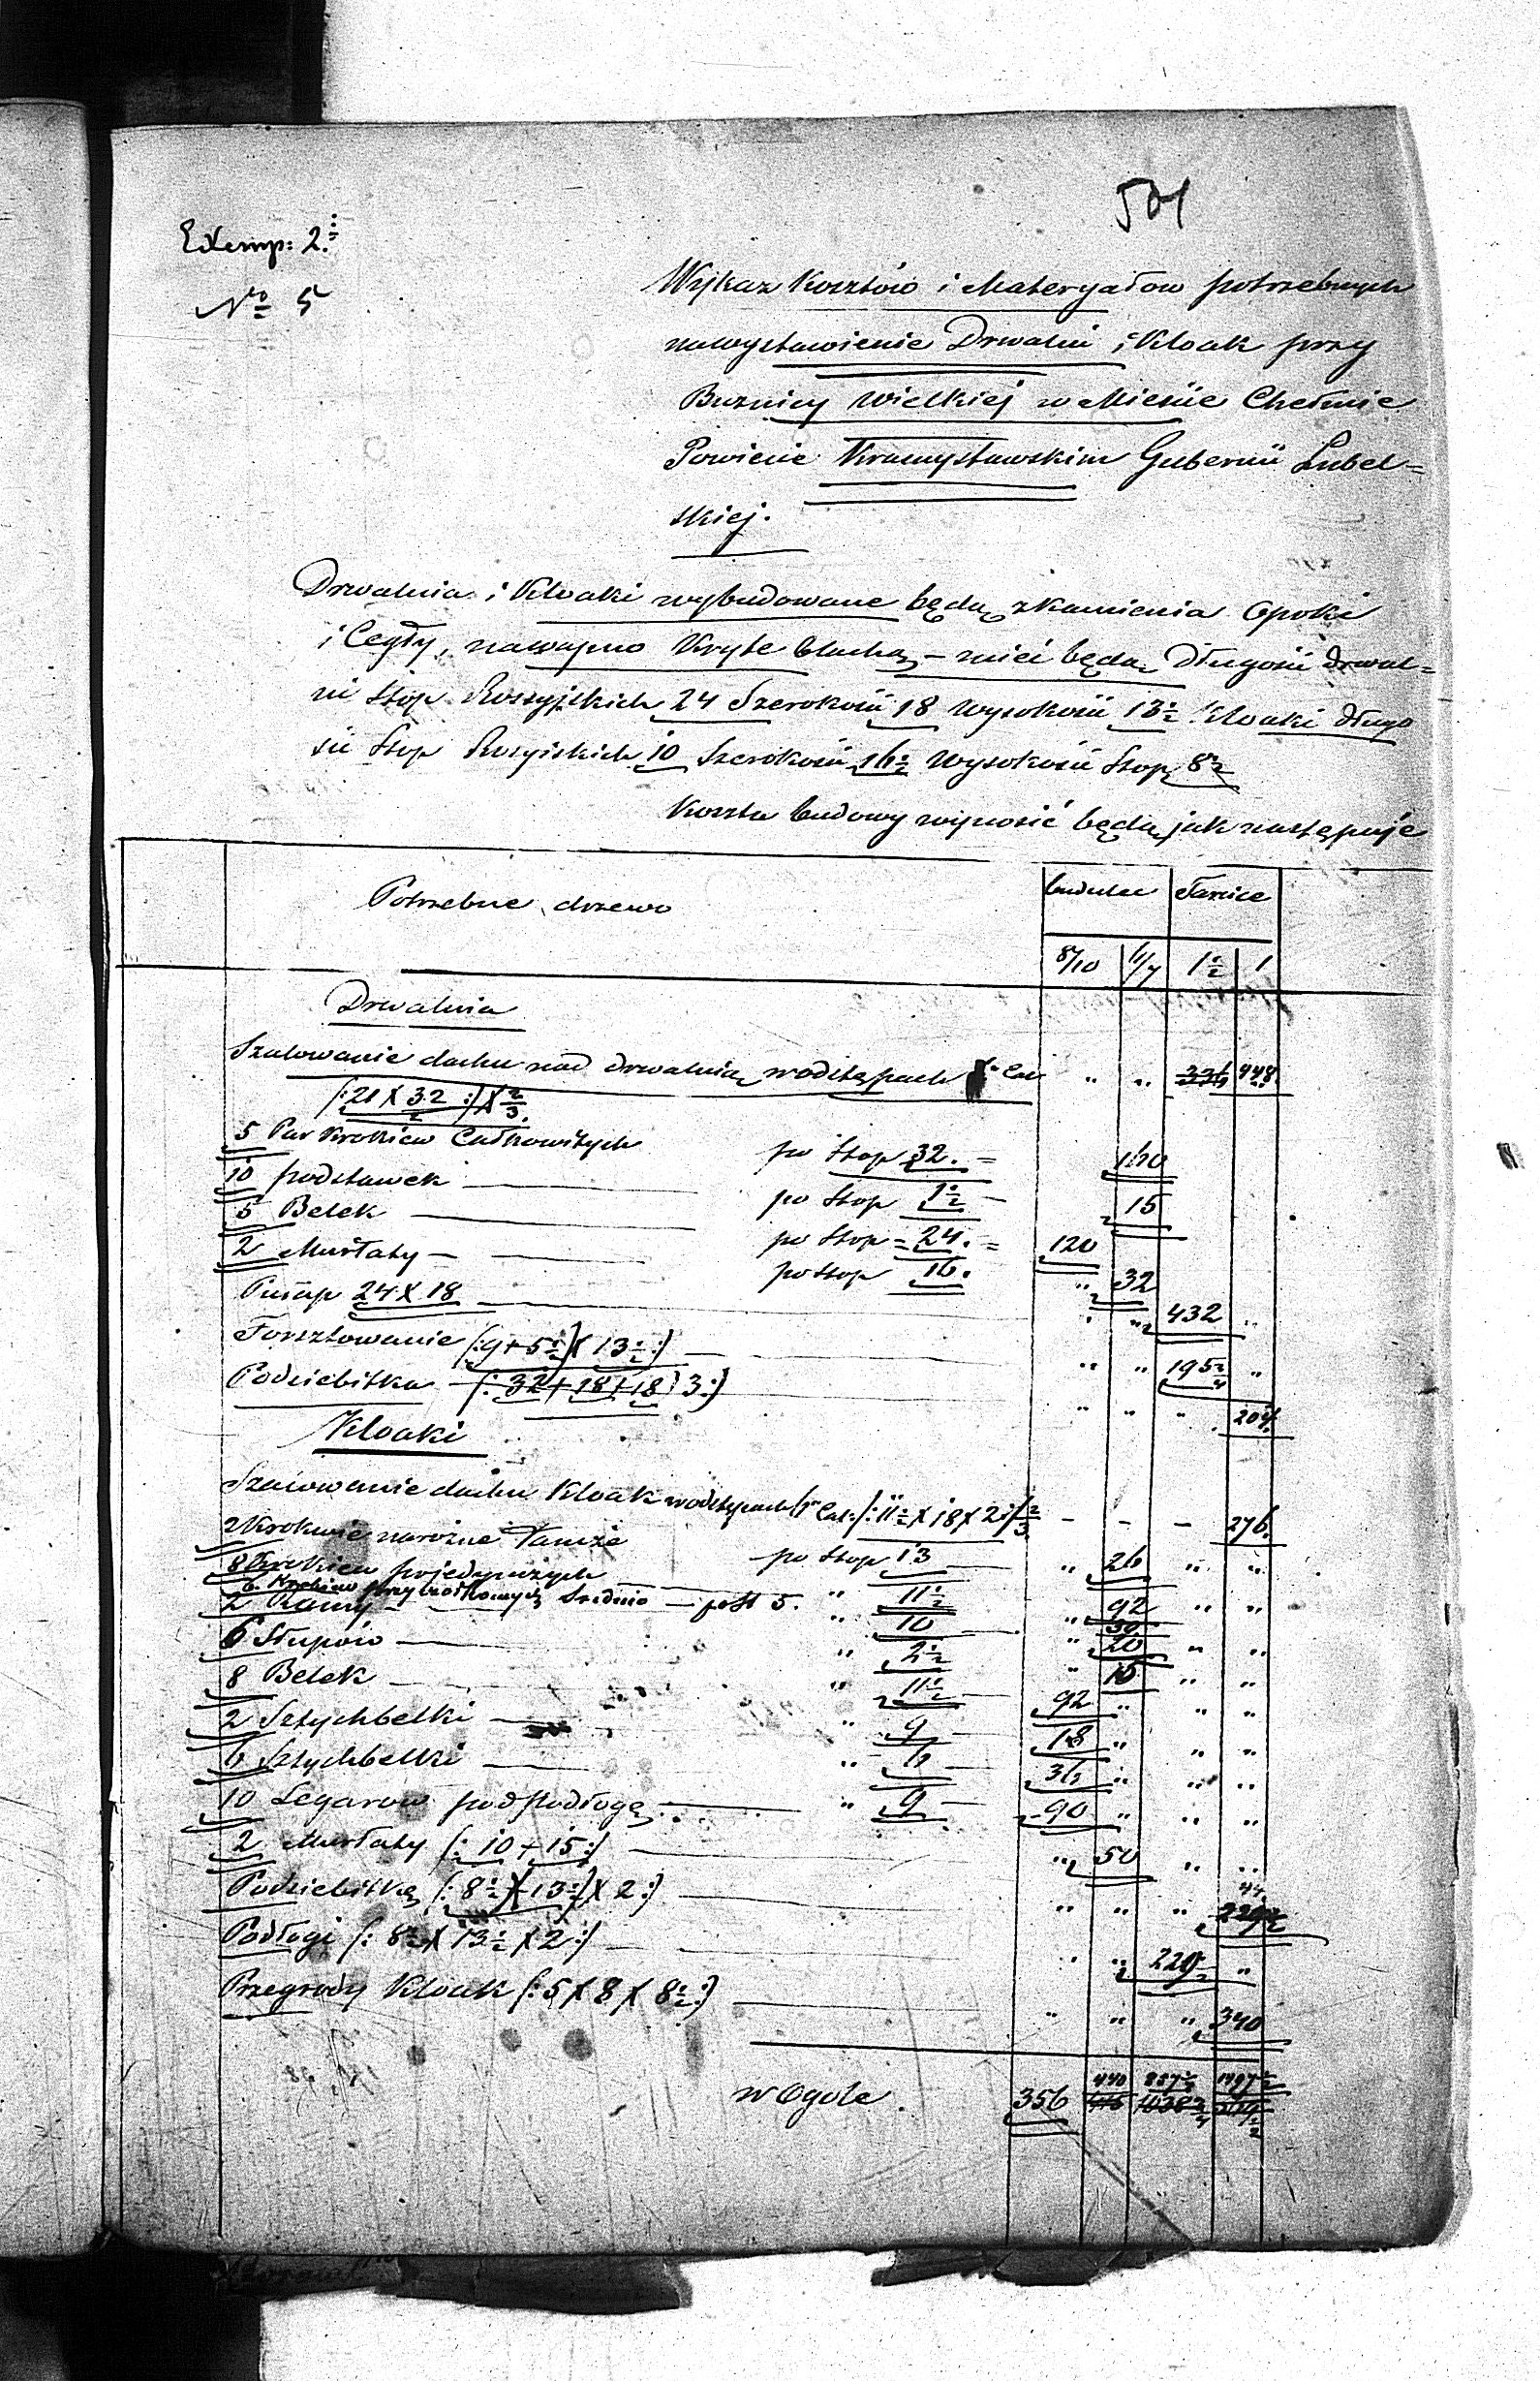 501
Exemp: 2.
No 5
Wykaz Kosztów i Materyałow potrzebnych
na wystawienie Drwalni i Kloak przy
Buznicy Wielkiej w Mieście Chełmie
Powiecie Krasnystawskim Gubernii Lubel=
skiej.
Drwalnia i Kloaki wybudowane będą z kamienia Opoki
i Cegły, na wapno Kryte blachą – mieć będą Długości drwal=
ni Stop Rossyjskich 24 Szerokości 18 Wysokości 13½ Kloaki długo
ści Stop Rosyiskich 10 Szerokości 16½ Wysokości Stop 8½
Koszta budowy wynosić będą jak następuje
Potrzebne drzewo budulec Tarcice
8/10 6/7 1½ 1
Drwalnia
Szalowanie dachu nad drwalnią w odstępach 1" Cal " " 448.
(:21 X 32:) X 2/3.
5 Par Krokiew Całkowitych po Stop 32. = 160
10 podstawek po Stop 1½ – 15
5 Belek po Stop = 24. = 120
2 Murłaty – po Stop 16. " 32
Pułap 24 X 18 " " 432 "
Forsztowanie (:9+5½) X 13½:) " " 195¾ "
Podsiebitka (:32+18+18) 3:) " " " 204.
Kloaki
Szalowanie dachu Kloak w odstępach 1" Cal: (:11½ X 18 X 2:) 2/3 – – – 276.
2 Krokwie narożne Tamże po Stop 13 " 26 " "
8 Krokiew pojedynczych " 11½ " 92 " "
6. Krokiew przyczołkowych Srednio – po St 5. 30
2 Ramy " 10 " 20 " "
6 Słupów " 2½ " 15 " "
8 Belek " 11½ 92 " " "
2 Sztychbelki " 9 18 " " "
6 Sztychbelki " 6 36 " " "
10 Legarow pod podłogę " 9 90 " " "
2 Murłaty (:10+15:) " 50 " "
Podsiebitka (:8½ X 13½) X 2:) " " " 229½
Podłogi (:8½ X 13½ X 2:) " " 229½ "
Przegrody Kloak (:5 X 8 X 8½:) " " " 340
w Ogole. 356 440 857¼ 1497½